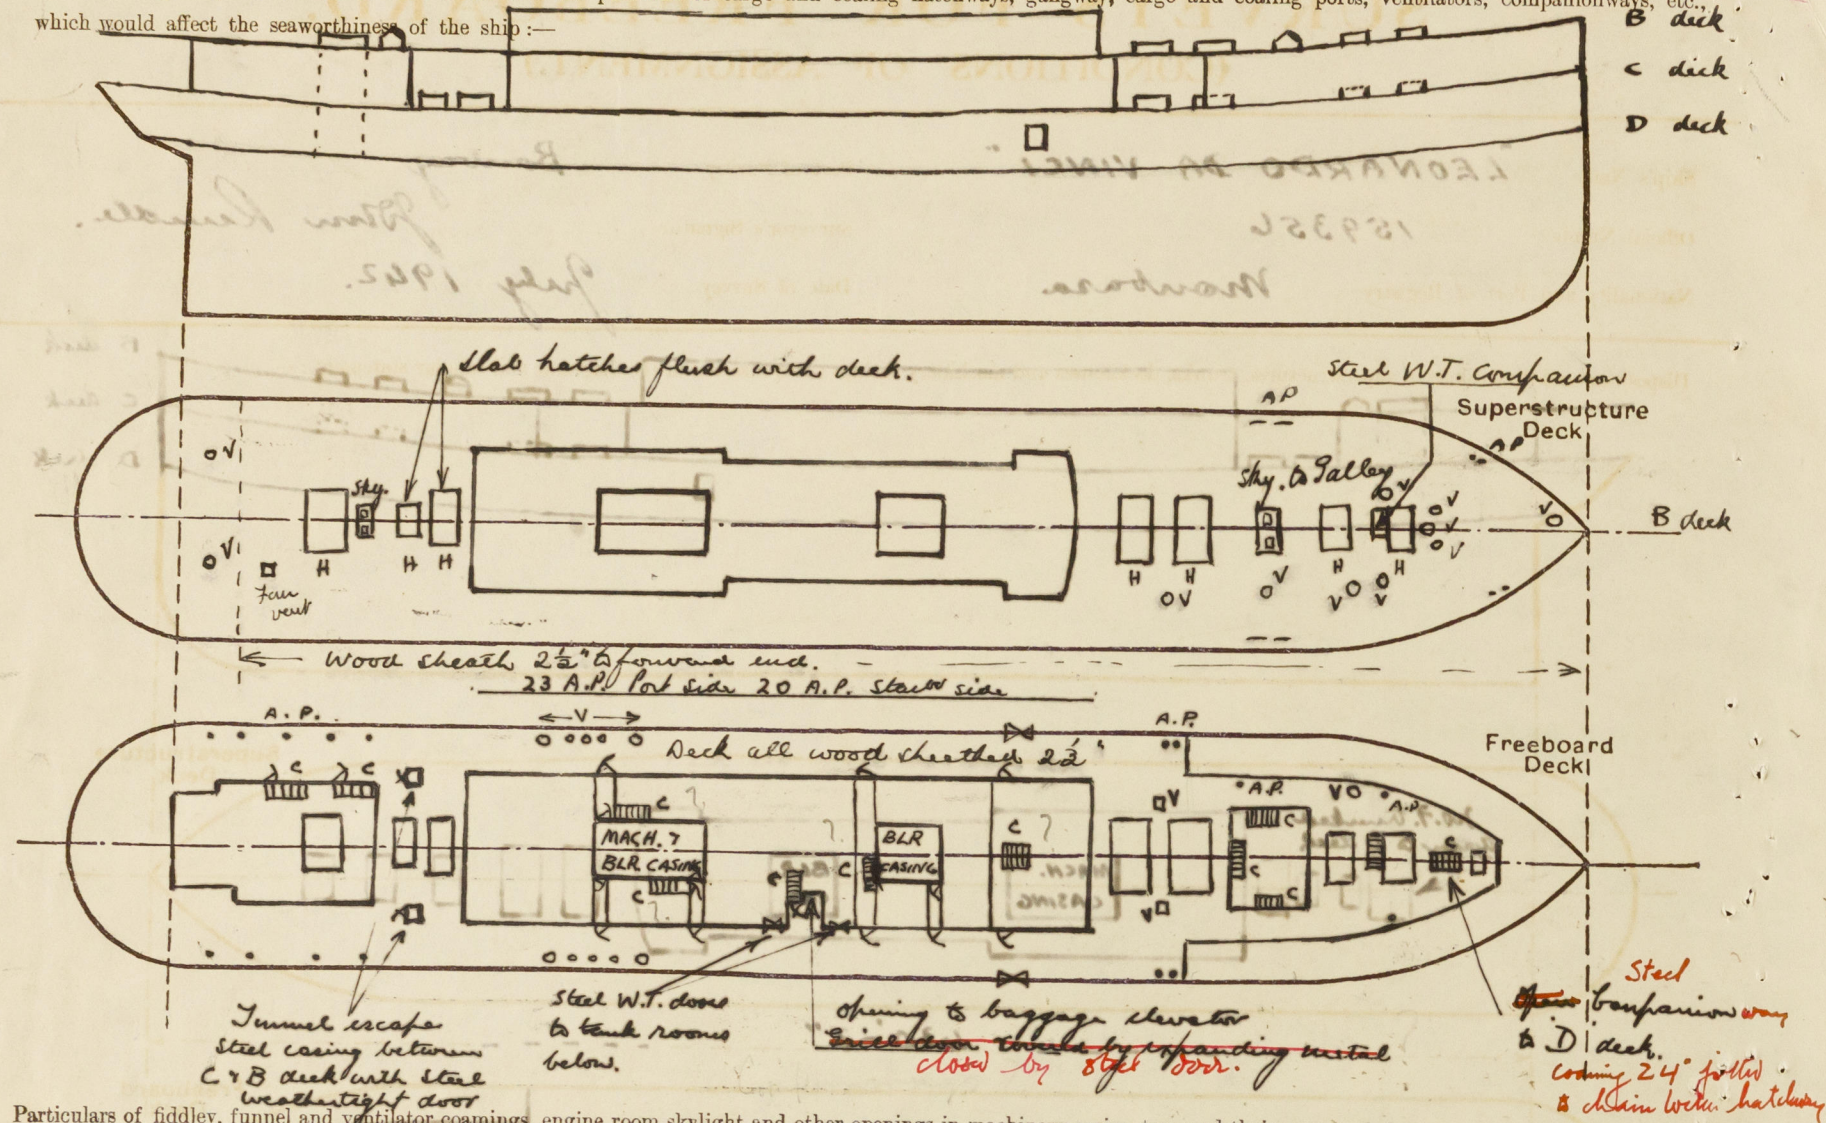 which would affect the seaworthiness of the ship :—
B deck
C deck
D deck
Slab hatches flush with deck.
Steel W.T. Companion
Superstructure
Deck
A P
A P
V
Sky.
Sky. to Galley
V
V
V
V
V
B deck
V
H
H
H
H
H
H
H
Fan
vent
V
V
V
V
Wood sheath 2½" to forward end.
23 A.P. Port side 20 A.P. Starbd side
A. P.
V
A.P.
Deck all wood sheathed 2½"
Freeboard
Deck
C
C
C
V
A.P.
V
A.P.
MACH. &
BLR CASING
BLR
CASING
C
C
C
C
C
C
C
C
V
Tunnel escape
Steel casing between
C & B deck with steel
weathertight door
Steel W.T. doors
to tank rooms
below.
opening to baggage elevator
Grill door covered by expanding metal
closed by steel door.
Steel
Open Companion way
to D deck.
coaming 24"
to chain locker hatchway
Particulars of fiddley, funnel and ventilator coamings, engine room skylight and other openings in